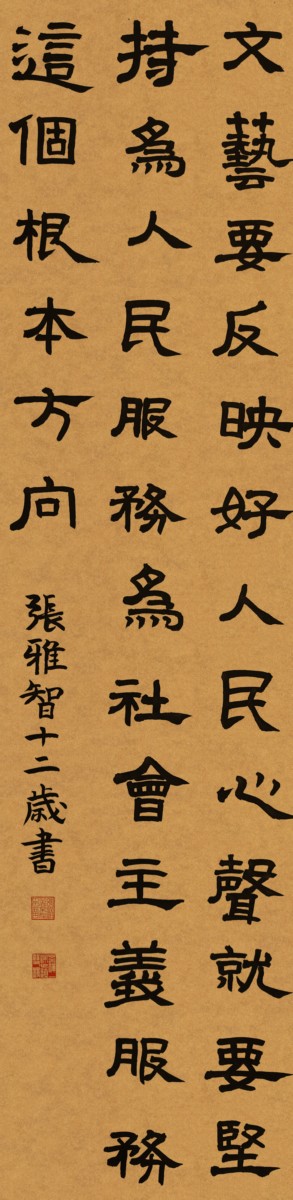 文藝要反映好人民心聲就要堅
持為人民服務為社會主義服務
這個根本方向
張雅智十二歲書